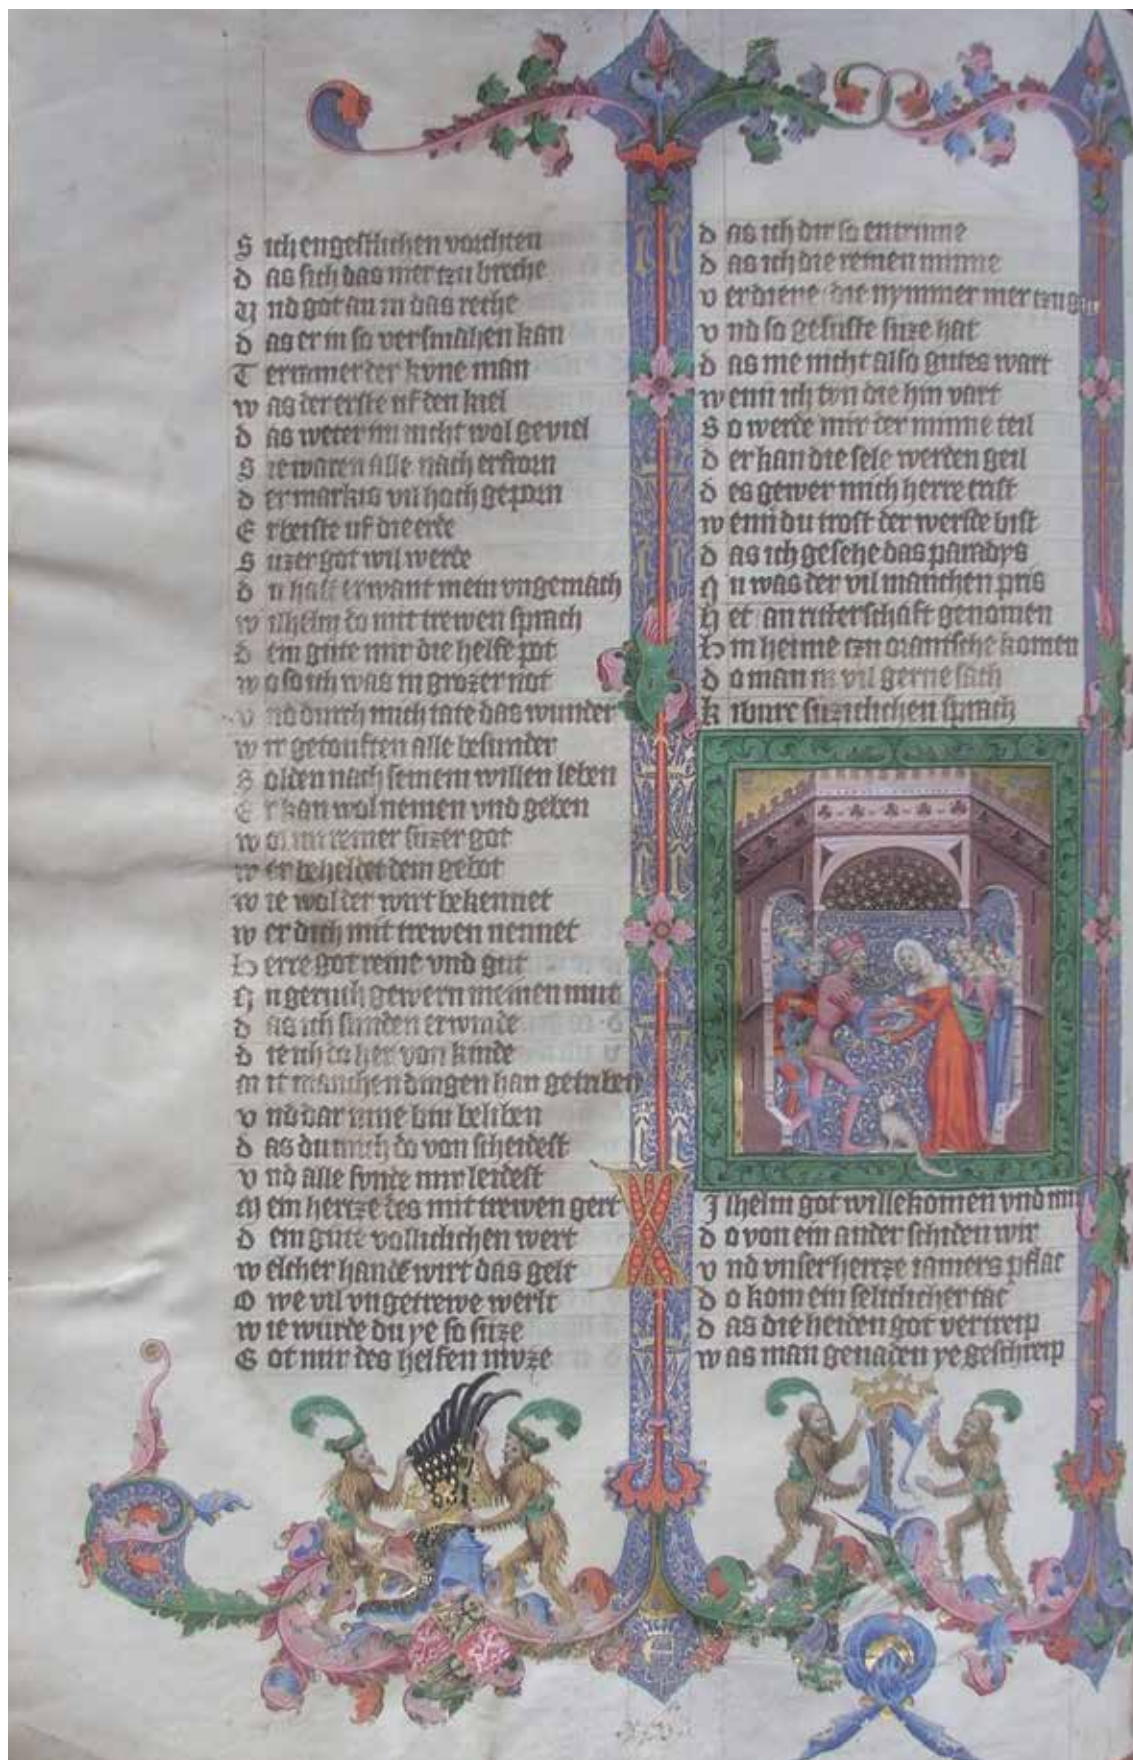 S ich engestlichen vorchten
D as sich das mer tzu breche
U nd got an in das reche
D as er in so versmahen kan
T erramer der kvne man
W as der erste uf den kiel
D as weter im nicht wol geviel
S ie waren alle nach erfrorn
D er markis vil hoch geporn
E rbeiste uf die erde
S uzer got wil werde
D u hast erwant mein vngemach
W ilhelm do mit trewen sprach
D em gute mir die helfe pot
W o so ich was in grozer not
V nd durch mich tate das wunder
W ir getouften alle besunder
S olden nach seinem willen leben
E r kan wol nemen vnd geben
W ol im reiner suzer got
W er beheldet dem gebot
W ie wol der wirt bekennet
W er dich mit trewen nennet
H erre got reine vnd gut
N u geruch gewern meinen mut
D as ich sunden erwinde
D ie ich da her von kinde
M it manchen dingen han getriben
V nd dar inne bin beliben
D as du mich do von scheidest
V nd alle sunde mir leidest
M ein hertze des mit trewen gert
D em gute vollichlichen wert
W elcher hande wirt das gelt
O we vil vngetrewe werlt
W ie wurde du ye so suze
G ot mir des helfen mvze
D as ich dir so entrinne
D as ich die reinen minne
V erdiene die nymmer mer tzu
V nd so gesuste suze hat
D as me nicht also gutes wart
W enn ich tvn die hin vart
S o werde mir der minne teil
D er kan die sele werden geil
D es gewer mich herre crist
W enn du trost der werlde bist
D as ich gesehe das paradys
N u was der vil manchen pris
H et an ritterschaft genomen
H in heime tzu orantsche komen
D o man in vil gerne sach
K iburc suzichlichen sprach
W
I lhelm got willekomen vnd mir
D o von ein ander schiden wir
V nd vnser hertze iamers pflac
D o kom ein selichlicher tac
D as die heiden got vertreip
W as man genaden ye geschreip